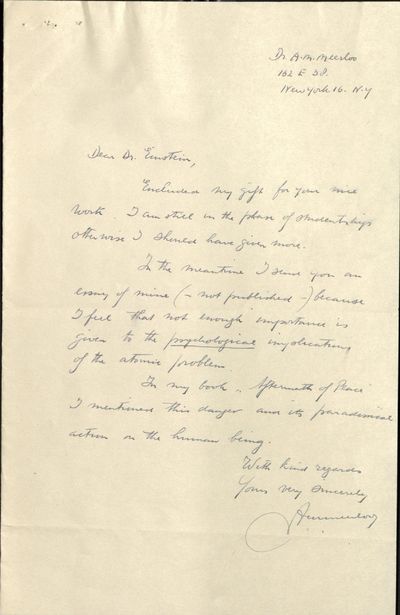 Dr. A.M. Meerloo
162 E 38.
New York 16. N.Y
Dear Dr. Einstein,
Encluded my gift for your nice
work. I am still in the phase of studentships
otherwise I should have given more.
In the meantime I send you an
essay of mine (- not published -) because
I feel that not enough importance is
given to the psychological implications
of the atomic problem.
In my book „ Aftermath of Peace
I mentioned this danger and its paradoxical
action on the human being.
With kind regards
Yours very sincerely